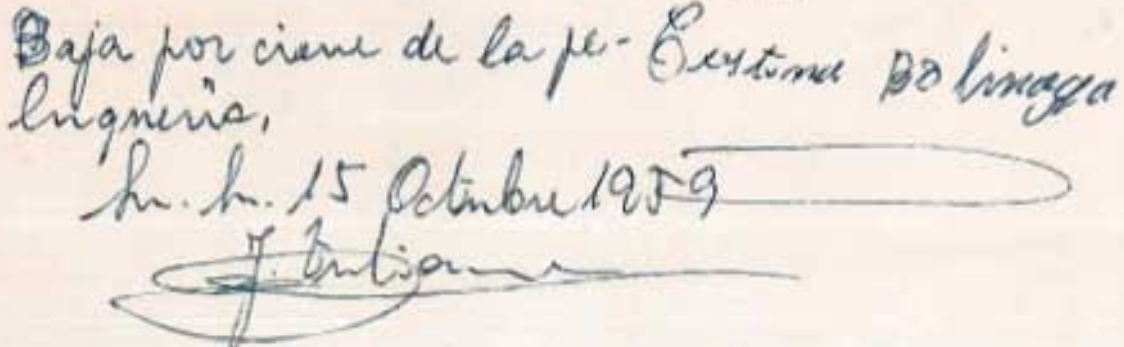 Baja por cierre de la pe- Cristina Bolinaga
luqueria,
15 Octubre 1959
J.